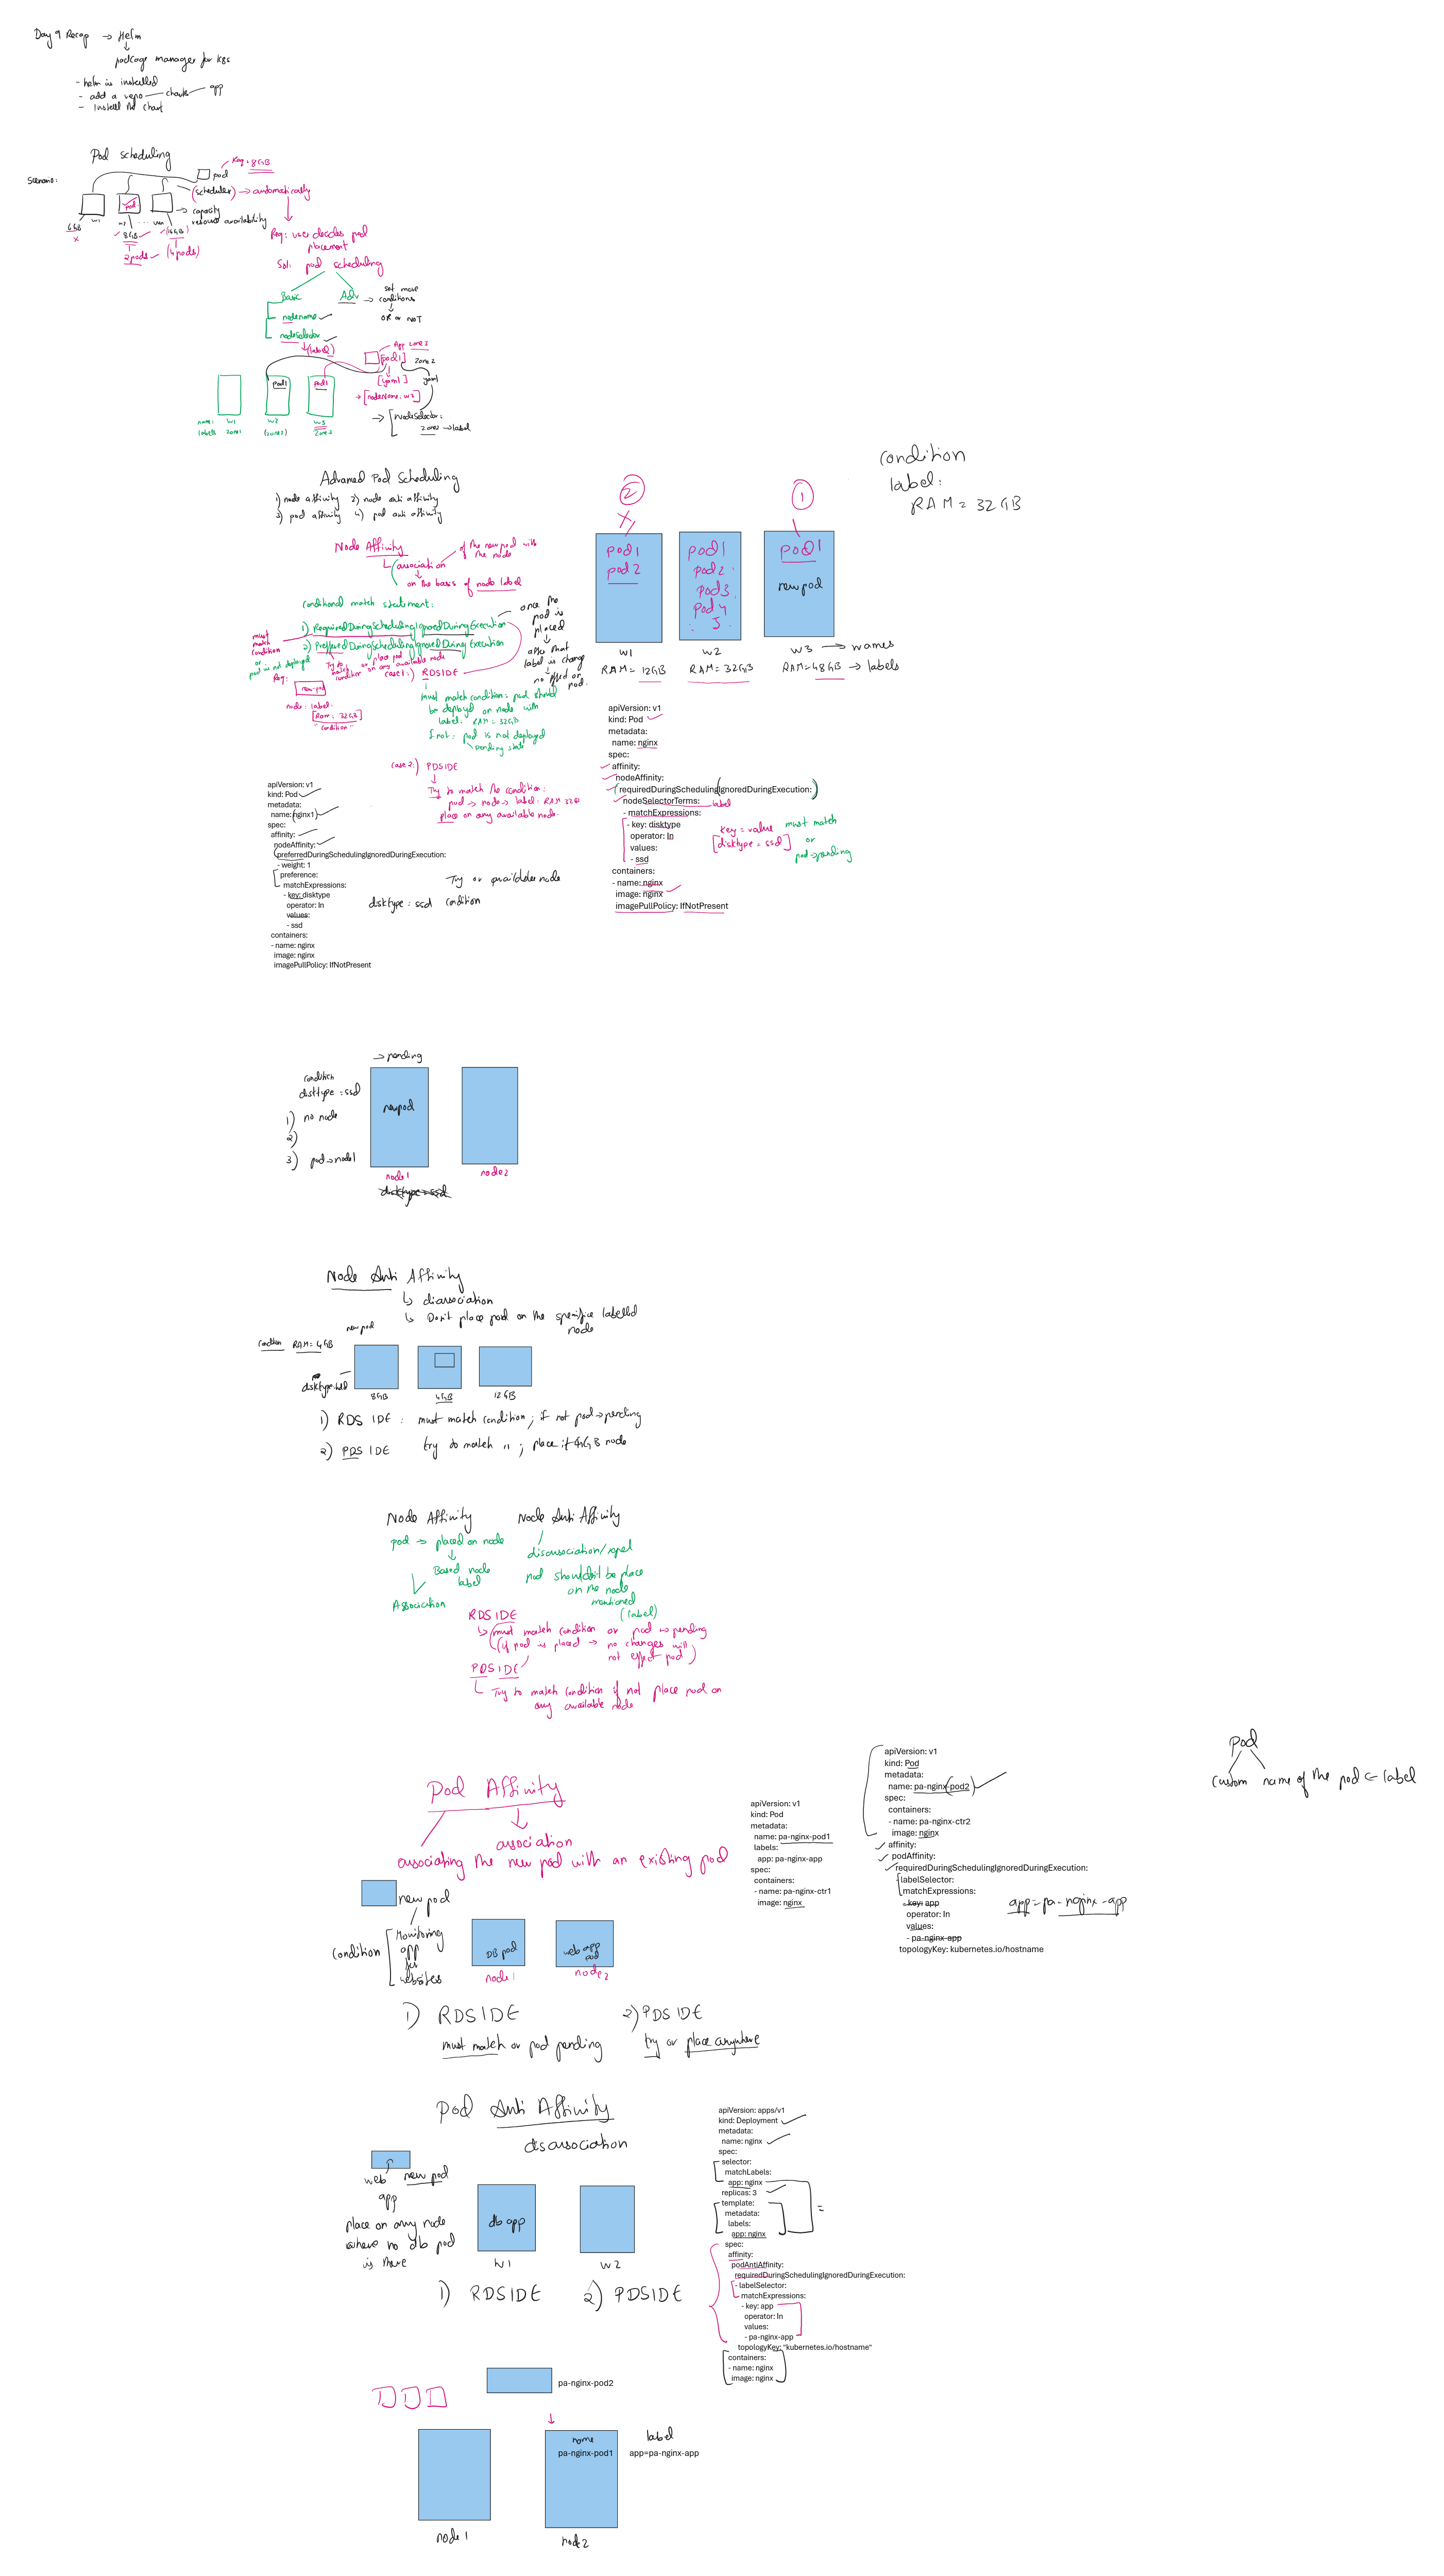 Day 9 Recap → Helm
↓
package manager for K8s
- helm is installed
- add a repo — charts — app
- Install the chart
Pod scheduling
Scenario:
Req: 8GB
pod
(scheduler) → automatically
pod
→ capacity
resource availability
w1
6GB
x
8GB
(16GB)
2 pods
(4 pods)
Req: user decides pod
placement
Sol: pod scheduling
Basic
Adv → set more
conditions
↓
OR or NOT
nodename
nodeselector
↓(label)
App zone 3
[pod1]
zone 2
[yaml]
yaml
→ [nodeName: w3]
→ [nodeSelector:
zone2 → label
pod1
pod1
name: w1 w2 w3
labels zone1 (zone2) zone3
Advanced Pod Scheduling
1) node affinity 2) node anti affinity
3) pod affinity 4) pod anti affinity
Node Affinity
of the new pod with
the node
association
on the basis of node label
Conditional match statement:
1) RequiredDuringSchedulingIgnoredDuringExecution
2) PreferredDuringSchedulingIgnoredDuringExecution
must
match
condition
or
pod is not deployed
Try to
match
condition
or place pod
on any available node
once the
pod is
placed
↓
after that
label is change
↓
no effect on
pod.
Req:
new pod
node: label:
[Ram: 32GB]
"condition"
case1:) RDSIDE
must match condition: pod should
be deployed on node with
label: RAM = 32GB
If not: pod is not deployed
pending state
case 2:) PDSIDE
↓
Try to match the condition:
pod → node → label: RAM 32GB
place on any available node.
condition
label:
RAM = 32GB
2
x
1
pod1
pod2
pod1
pod2
pod3
pod4
pod1
new pod
w1 w2 w3 → names
RAM = 12GB RAM = 32GB RAM=48GB → labels
apiVersion: v1
kind: Pod
metadata:
name: nginx
spec:
affinity:
nodeAffinity:
requiredDuringSchedulingIgnoredDuringExecution:
nodeSelectorTerms: label
- matchExpressions:
- key: disktype
operator: In
values:
- ssd
containers:
- name: nginx
image: nginx
imagePullPolicy: IfNotPresent
key = value
[disktype = ssd]
must match
or
pod → pending
apiVersion: v1
kind: Pod
metadata:
name: nginx1
spec:
affinity:
nodeAffinity:
preferredDuringSchedulingIgnoredDuringExecution:
- weight: 1
preference:
matchExpressions:
- key: disktype
operator: In
values:
- ssd
containers:
- name: nginx
image: nginx
imagePullPolicy: IfNotPresent
Try or available node
disktype = ssd condition
→ pending
condition
disktype = ssd
1) no node
2)
3) pod → node1
new pod
node1
node2
disktype=ssd
Node Anti Affinity
↳ disassociation
↳ Don't place pod on the specific labelled
node
new pod
condition RAM = 4GB
8GB 4GB 12GB
1) RDSIDE : must match condition ; if not pod → pending
2) PDSIDE try to match " ; place it 4GB node
Node Affinity
pod → placed on node
↓
Based node
label
Association
Node Anti Affinity
disassociation/repel
pod shouldn't be place
on the node
mentioned
(label)
RDSIDE
↳ must match condition or pod → pending
(if pod is placed → no changes will
not effect pod)
PDSIDE
Try to match condition if not place pod on
any available node
Pod Affinity
↓
association
associating the new pod with an existing pod
new pod
condition
Monitoring
app
for
websites
DB pod
web app
pod
node1
node2
1) RDSIDE
must match or pod pending
2) PDSIDE
try or place anywhere
apiVersion: v1
kind: Pod
metadata:
name: pa-nginx-pod1
labels:
app: pa-nginx-app
spec:
containers:
- name: pa-nginx-ctr1
image: nginx
apiVersion: v1
kind: Pod
metadata:
name: pa-nginx-pod2
spec:
containers:
- name: pa-nginx-ctr2
image: nginx
affinity:
podAffinity:
requiredDuringSchedulingIgnoredDuringExecution:
- labelSelector:
matchExpressions:
- key: app
operator: In
values:
- pa-nginx-app
topologyKey: kubernetes.io/hostname
app=pa-nginx-app
Pod
custom name of the pod ← label
Pod Anti Affinity
disassociation
web new pod
app
place on any node
where no db pod
is there
db app
w1
w2
1) RDSIDE 2) PDSIDE
apiVersion: apps/v1
kind: Deployment
metadata:
name: nginx
spec:
selector:
matchLabels:
app: nginx
replicas: 3
template:
metadata:
labels:
app: nginx
=
spec:
affinity:
podAntiAffinity:
requiredDuringSchedulingIgnoredDuringExecution:
- labelSelector:
matchExpressions:
- key: app
operator: In
values:
- pa-nginx-app
topologyKey: "kubernetes.io/hostname"
containers:
- name: nginx
image: nginx
pa-nginx-pod2
name
pa-nginx-pod1
label
app=pa-nginx-app
node1
node2